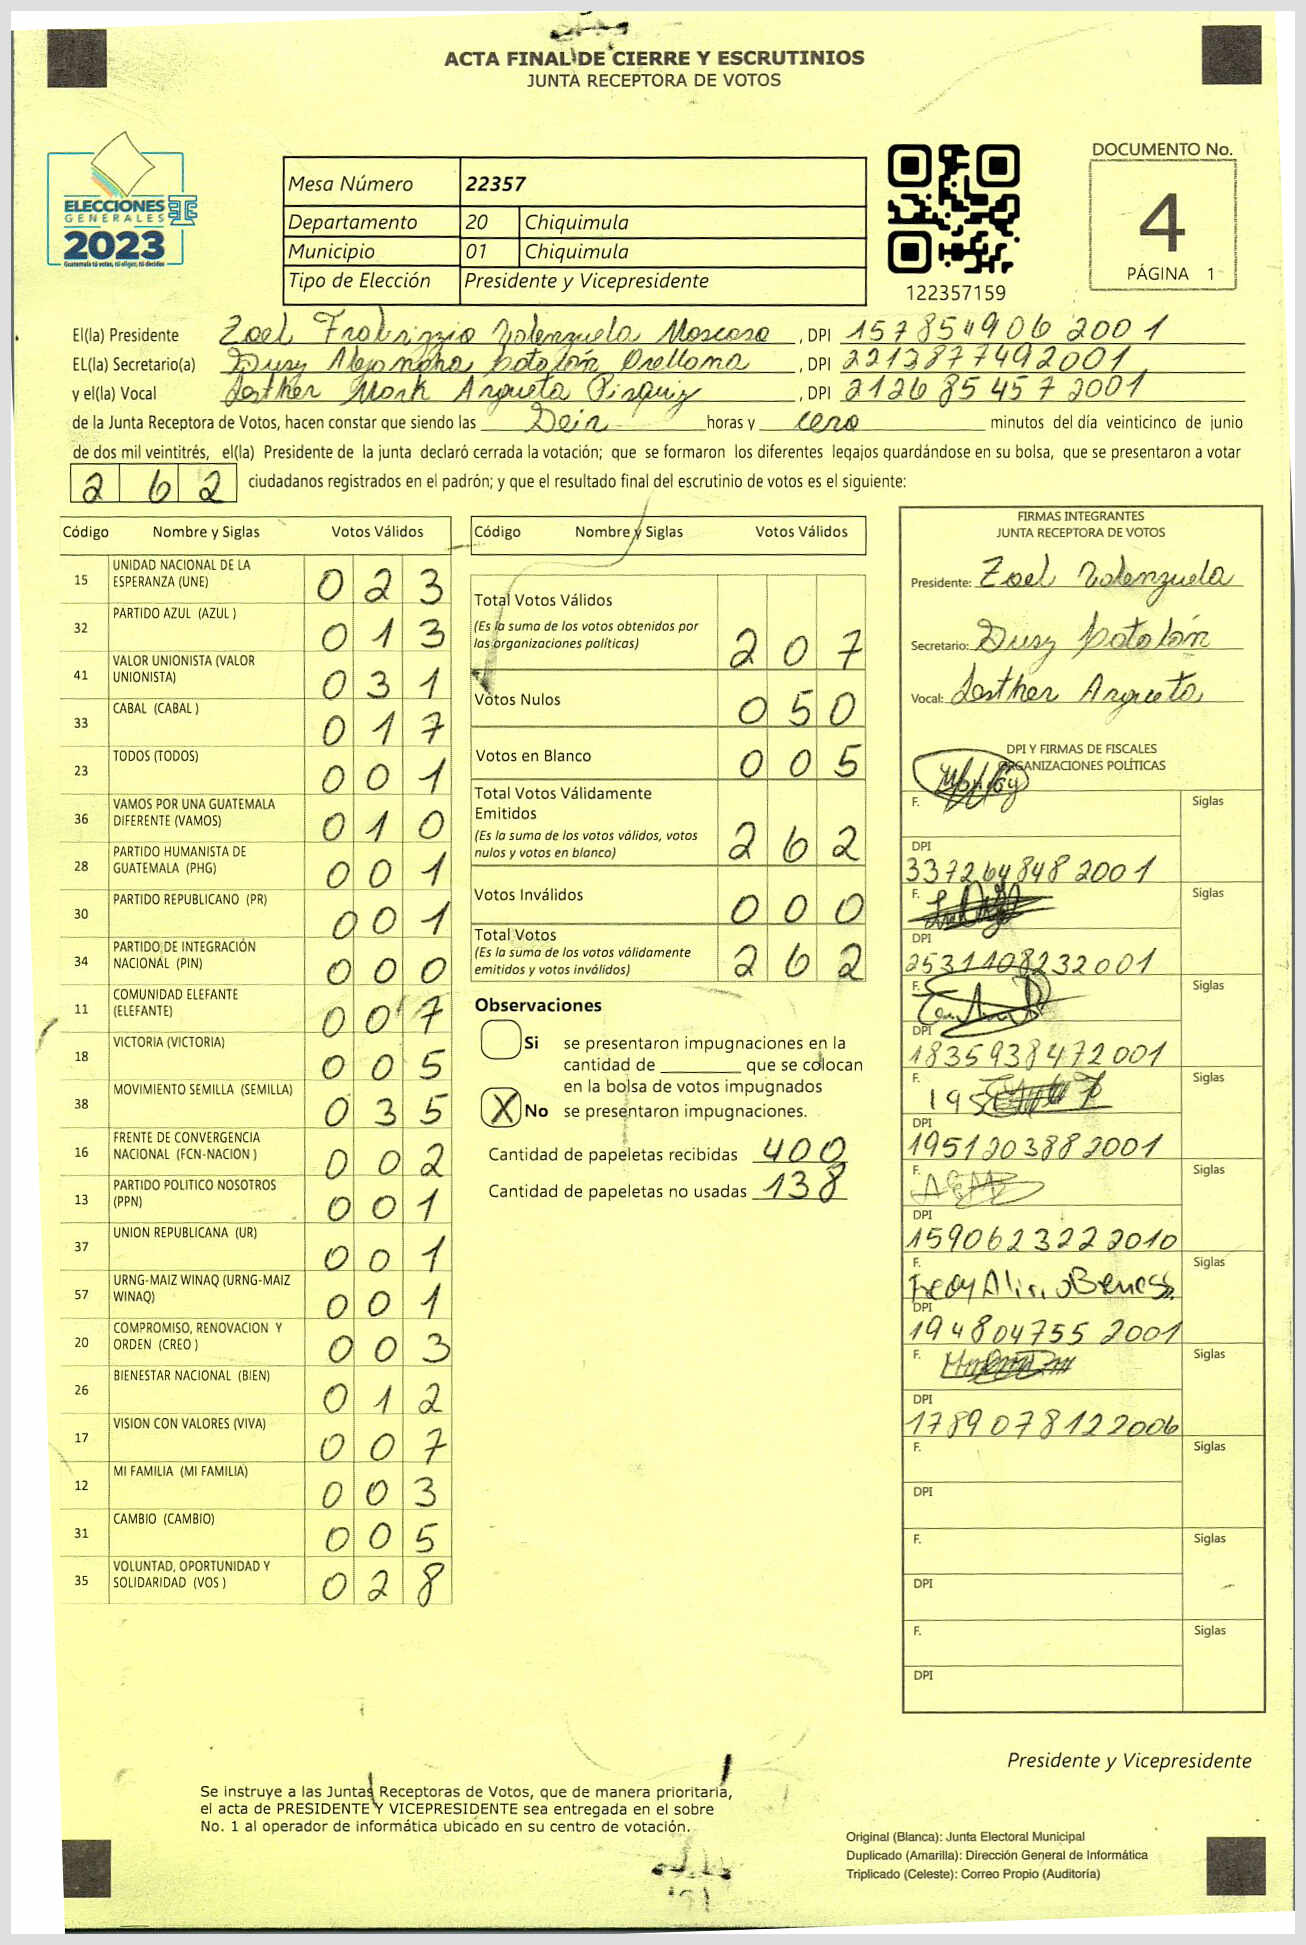 ACTA FINAL DE CIERRE Y ESCRUTINIOS
JUNTA RECEPTORA DE VOTOS
ELECCIONES
GENERALES
2023
Guatemala tú votas, tú eliges, tú decides
Mesa Número 22357
Departamento 20 Chiquimula
Municipio 01 Chiquimula
Tipo de Elección Presidente y Vicepresidente
122357159
DOCUMENTO No.
4
PÁGINA 1
El(la) Presidente Zoel Valenzuela Moscoso, DPI 2001
EL(la) Secretario(a) Orellana, DPI 2213877492001
y el(la) Vocal Argueta, DPI 2126854572001
de la Junta Receptora de Votos, hacen constar que siendo las horas y cero minutos del día veinticinco de junio
de dos mil veintitrés, el(la) Presidente de la junta declaró cerrada la votación; que se formaron los diferentes legajos guardándose en su bolsa, que se presentaron a votar
262 ciudadanos registrados en el padrón; y que el resultado final del escrutinio de votos es el siguiente:
Código Nombre y Siglas Votos Válidos
15 UNIDAD NACIONAL DE LA ESPERANZA (UNE) 023
32 PARTIDO AZUL (AZUL ) 013
41 VALOR UNIONISTA (VALOR UNIONISTA) 031
33 CABAL (CABAL ) 017
23 TODOS (TODOS) 001
36 VAMOS POR UNA GUATEMALA DIFERENTE (VAMOS) 010
28 PARTIDO HUMANISTA DE GUATEMALA (PHG) 001
30 PARTIDO REPUBLICANO (PR) 001
34 PARTIDO DE INTEGRACIÓN NACIONAL (PIN) 000
11 COMUNIDAD ELEFANTE (ELEFANTE) 007
18 VICTORIA (VICTORIA) 005
38 MOVIMIENTO SEMILLA (SEMILLA) 035
16 FRENTE DE CONVERGENCIA NACIONAL (FCN-NACION ) 002
13 PARTIDO POLITICO NOSOTROS (PPN) 001
37 UNION REPUBLICANA (UR) 001
57 URNG-MAIZ WINAQ (URNG-MAIZ WINAQ) 001
20 COMPROMISO, RENOVACION Y ORDEN (CREO ) 003
26 BIENESTAR NACIONAL (BIEN) 012
17 VISION CON VALORES (VIVA) 007
12 MI FAMILIA (MI FAMILIA) 003
31 CAMBIO (CAMBIO) 005
35 VOLUNTAD, OPORTUNIDAD Y SOLIDARIDAD (VOS ) 028
Código Nombre y Siglas Votos Válidos
Total Votos Válidos
(Es la suma de los votos obtenidos por
las organizaciones políticas) 207
Votos Nulos 050
Votos en Blanco 005
Total Votos Válidamente
Emitidos
(Es la suma de los votos válidos, votos
nulos y votos en blanco) 262
Votos Inválidos 000
Total Votos
(Es la suma de los votos válidamente
emitidos y votos inválidos) 262
Observaciones
Si se presentaron impugnaciones en la
cantidad de ________ que se colocan
en la bolsa de votos impugnados
X No se presentaron impugnaciones.
Cantidad de papeletas recibidas 400
Cantidad de papeletas no usadas 138
FIRMAS INTEGRANTES
JUNTA RECEPTORA DE VOTOS
Presidente: Zoel Valenzuela
Secretario:
Vocal: Argueta
DPI Y FIRMAS DE FISCALES
ORGANIZACIONES POLÍTICAS
F. Siglas
DPI
3372648482001
F. Siglas
DPI
2531108232001
F. Siglas
DPI
1835938472001
F. Siglas
DPI
1951203882001
F. Siglas
DPI
1590623222010
F. Siglas
DPI
1948047552001
F. Siglas
DPI
1789078122006
F. Siglas
DPI
F. Siglas
DPI
F. Siglas
DPI
Presidente y Vicepresidente
Se instruye a las Juntas Receptoras de Votos, que de manera prioritaria,
el acta de PRESIDENTE Y VICEPRESIDENTE sea entregada en el sobre
No. 1 al operador de informática ubicado en su centro de votación.
Original (Blanca): Junta Electoral Municipal
Duplicado (Amarilla): Dirección General de Informática
Triplicado (Celeste): Correo Propio (Auditoría)